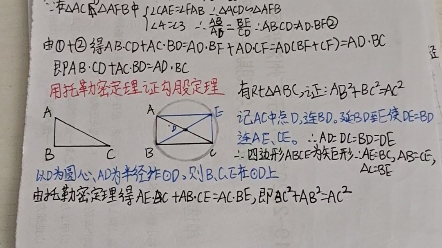 ∵在△AC 和△AFB中 { ∠CAE=∠FAB ∴△ACD∽△AFB
∠4=∠3 ∴ AB/AD = BF/CD ∴AB·CD=AD·BF②
由①+②得AB·CD+AC·BD=AD·BF+AD·CF=AD(BF+CF)=AD·BC
即AB·CD+AC·BD=AD·BC
用托勒密定理证勾股定理 有Rt△ABC,证:AB²+BC²=AC²
A B C
A E D B C
记AC中点D,连BD,延BD至E使DE=BD
连AE、CE。∴AD=DC=BD=DE
∴四边形ABCE为矩形∴AE=BC,AB=CE,
AC=BE
以D为圆心,AD为半径作⊙D,则B、C、E在⊙D上
由托勒密定理得AE·BC+AB·CE=AC·BE,即BC²+AB²=AC²